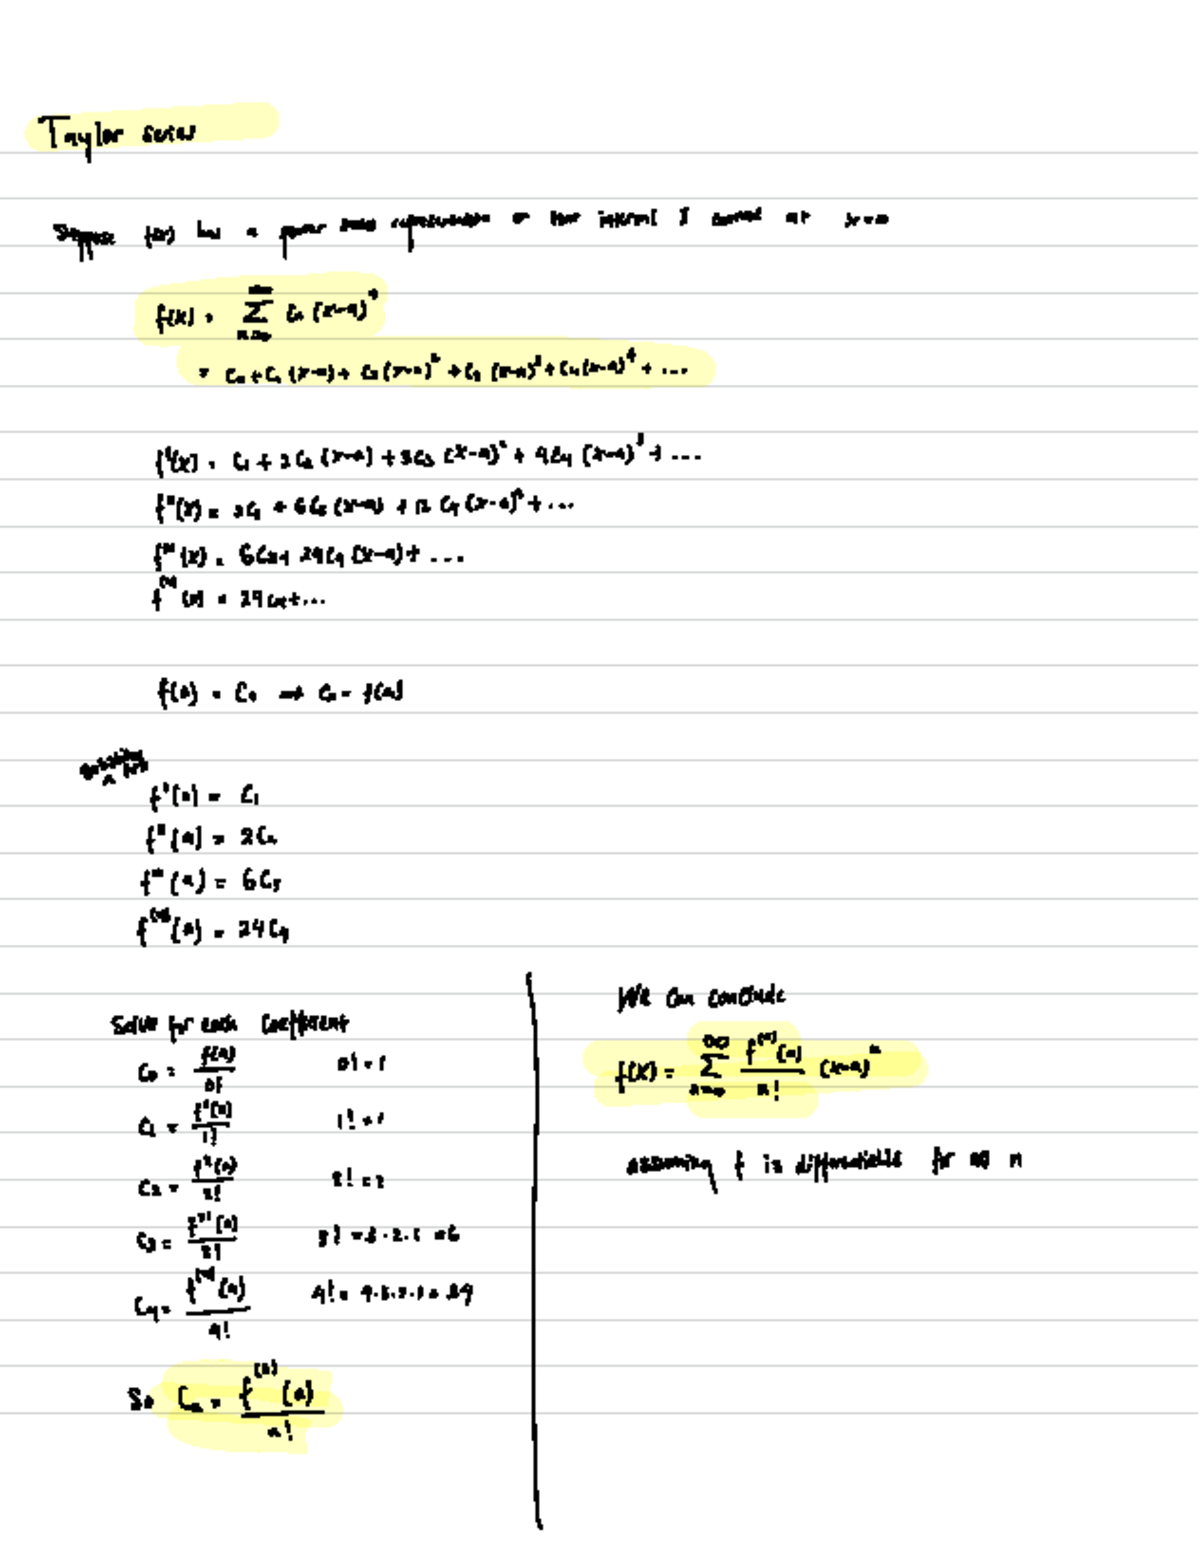 Taylor Series
Suppose f(x) has a power series representation on interval I at x=a
f(x) = ∑_{n=0}^{∞} Cₙ (x-a)ⁿ
= C₀ + C₁ (x-a) + C₂ (x-a)² + C₃ (x-a)³ + C₄ (x-a)⁴ + ...
f'(x) = C₁ + 2C₂ (x-a) + 3C₃ (x-a)² + 4C₄ (x-a)³ + ...
f''(x) = 2C₂ + 6C₃ (x-a) + 12 C₄ (x-a)² + ...
f'''(x) = 6C₃ + 24C₄ (x-a) + ...
f⁽⁴⁾(x) = 24C₄ + ...
f(a) = C₀ → C₀ = f(a)
f'(a) = C₁
f''(a) = 2C₂
f'''(a) = 6C₃
f⁽⁴⁾(a) = 24C₄
Solve for each Coefficient
C₀ = f(a)/0! 0! = 1
C₁ = f'(a)/1! 1! = 1
C₂ = f²(a)/2! 2! = 2
C₃ = f'''(a)/3! 3! = 3·2·1 = 6
C₄ = f⁽⁴⁾(a)/4! 4! = 4·3·2·1 = 24
So Cₙ = f⁽ⁿ⁾(a)/n!
We can conclude
f(x) = ∑_{n=0}^{∞} f⁽ⁿ⁾(a)/n! (x-a)ⁿ
assuming f is differentiable for all n